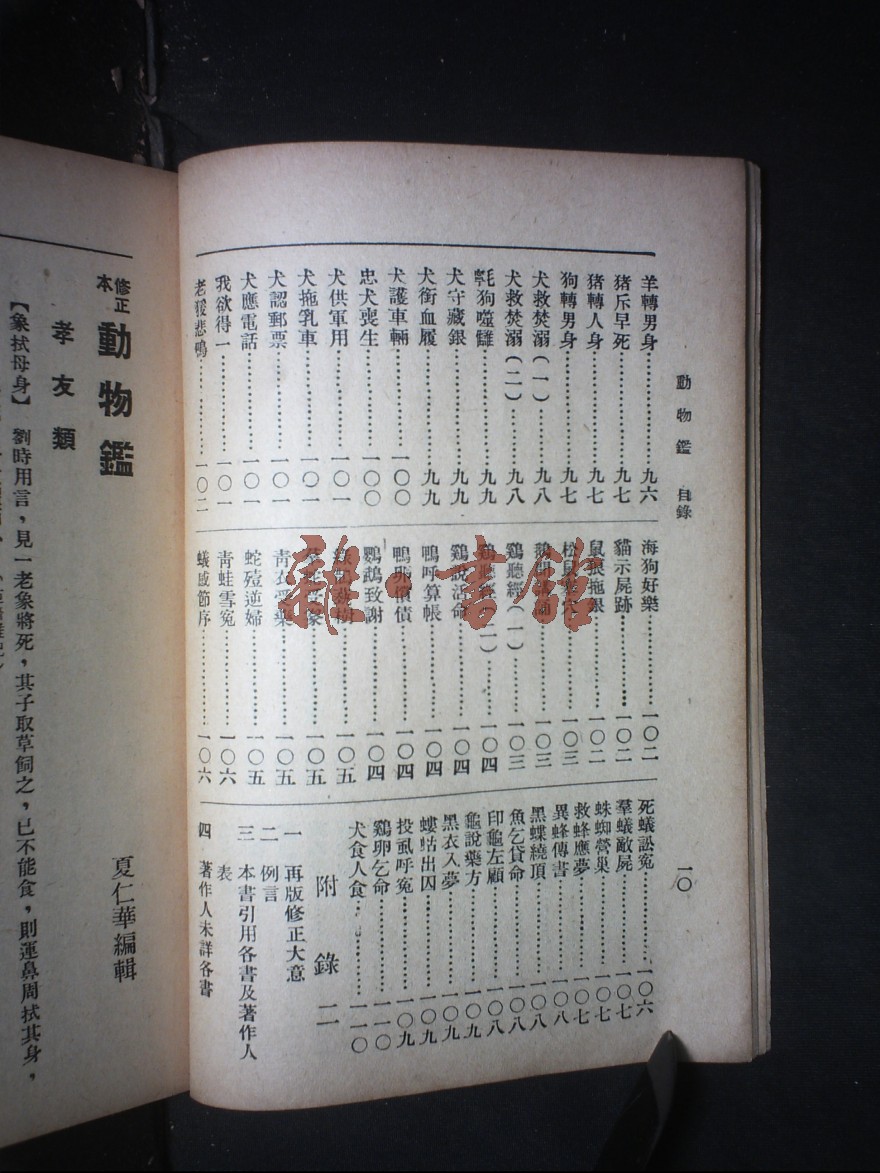 動物鑑 目錄
一〇
羊轉男身……九六
豬斥早死……九七
豬轉人身……九七
狗轉男身……九七
犬救焚溺(一)……九八
犬救焚溺(二)……九八
氄狗噬讎……九九
犬守藏銀……九九
犬銜血履……九九
犬護車輛……一〇〇
忠犬喪生……一〇〇
犬供軍用……一〇一
犬拖乳車……一〇一
犬認郵票……一〇一
犬應電話……一〇一
我欲得一……一〇一
老猨悲鳴……一〇二
海狗好樂……一〇二
貓示屍跡……一〇二
鼠狼拖銀……一〇二
松鼠……一〇三
鵝聞……一〇三
鷄聽經(一)……一〇三
鷄聽經(二)……一〇四
鷄說活命……一〇四
鴨呼算帳……一〇四
鴨卵償債……一〇四
鸚鵡致謝……一〇四
……一〇五
……一〇五
青衣受藥……一〇五
蛇殪逆婦……一〇五
青蛙雪冤……一〇六
蟻感節序……一〇六
死蟻訟冤……一〇六
羣蟻敵屍……一〇七
蛛蜘營巢……一〇七
救蜂應夢……一〇七
異蜂傳書……一〇八
黑蝶繞頂……一〇八
魚乞貸命……一〇八
印龜左顧……一〇八
龜說藥方……一〇九
黑衣入夢……一〇九
螻蛄出囚……一〇九
投虱呼冤……一〇九
鷄卵乞命……一一〇
犬食人食……一一〇
附錄二
一 再版修正大意
二 例言
三 本書引用各書及著作人
表
四 著作人未詳各書
修正本 動物鑑
夏仁華編輯
孝友類
【象拭母身】 劉時用言,見一老象將死,其子取草飼之,已不能食,則運鼻周拭其身,
雜·書館